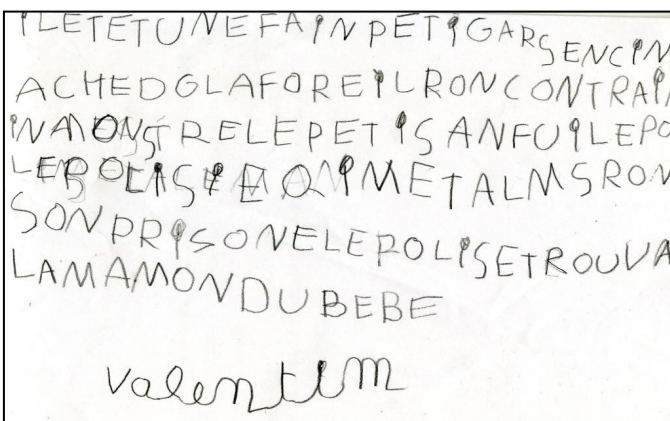 ILETETUNEFAINPETIGARSENCIN
ACHEDGLAFOREILRONCONTRAI
INMONSTRELEPETISANFUILEPO
METALMSRON
SONPRISONELEPOLISETROUVA
LAMAMONDUBEBE
valentim